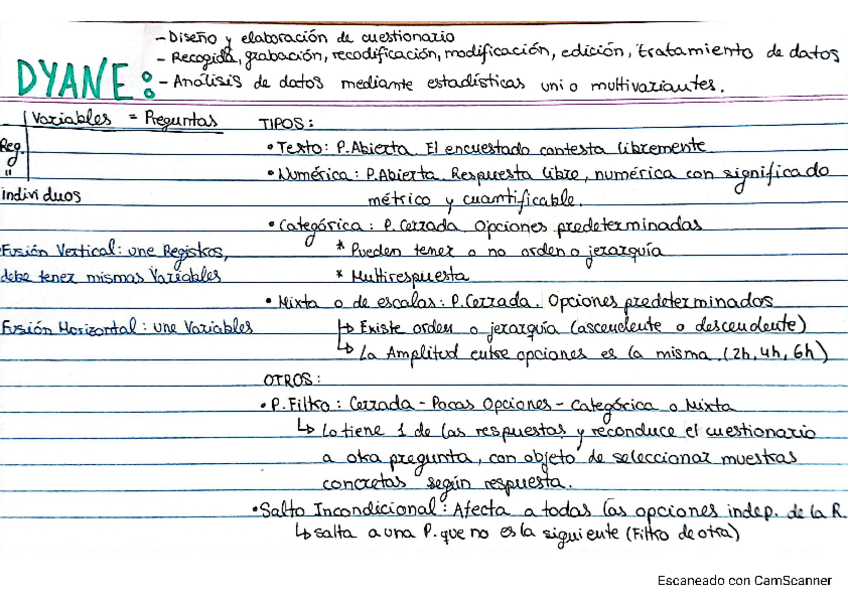 - Diseño y elaboración de cuestionario
- Recogida, grabación, recodificación, modificación, edición, tratamiento de datos
DYANE:
- Análisis de datos mediante estadísticas uni o multivariantes.
Variables = Preguntas
TIPOS:
Reg.
"
individuos
• Texto: P.Abierta. El encuestado contesta libremente
• Numérica: P.Abierta. Respuesta libre, numérica con significado
métrico y cuantificable.
• Categórica: P. Cerrada. Opciones predeterminadas
* Pueden tener o no orden o jerarquía
* Multirespuesta
Fusión Vertical: une Registros,
debe tener mismas Variables
Fusión Horizontal: une Variables
• Mixta o de escalas: P.Cerrada. Opciones predeterminados
↳ Existe orden o jerarquía (ascendente o descendente)
↳ La Amplitud entre opciones es la misma. (2h, 4h, 6h)
OTROS:
• P.Filtro: Cerrada - Pocas Opciones - Categórica o Mixta
↳ Lo tiene 1 de las respuestas y reconduce el cuestionario
a otra pregunta, con objeto de seleccionar muestras
concretas según respuesta.
• Salto Incondicional: Afecta a todas las opciones indep. de la R.
↳ salta a una P. que no es la siguiente (Filtro de otra)
Escaneado con CamScanner